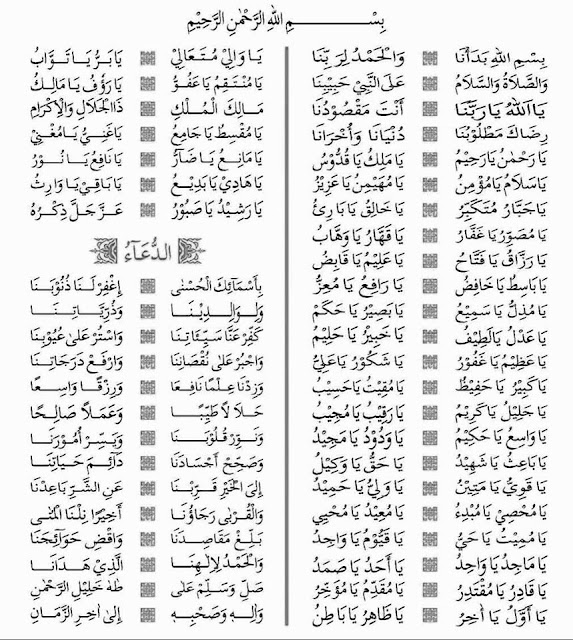 بِسْــــــمِ اللهِ الرَّحْمٰنِ الرَّحِيْمِ
بِسْمِ اللهِ بَدَأْنَا وَالْحَمْدُ لِرَبِّنَا
وَالصَّلَاةُ وَالسَّلَام عَلَى النَّبِيْ حَبِيْبِنَا
يَا اَللهُ يَا رَبَّنَا أَنْتَ مَقْصُوْدُنَا
رِضَاكَ مَطْلُوْبُنَا دُنْيَانَا وَأُخْرَانَا
يَا رَحْمٰنُ يَا رَحِيْمُ يَا مَلِكُ يَا قُدُّوْسُ
يَا سَلَامُ يَا مُؤْمِنُ يَا مُهَيْمِنُ يَا عَزِيْزُ
يَا جَبَّارُ مُتَكَبِّرُ يَا خَالِقُ يَا بَارِئُ
يَا مُصَوِّرُ يَا غَفَّارُ يَا قَهَّارُ يَا وَهَّابُ
يَا رَزَّاقُ يَا فَتَّاحُ يَا عَلِيْمُ يَا قَابِضُ
يَا بَاسِطُ يَا خَافِضُ يَا رَافِعُ يَا مُعِزُّ
يَا مُذِلُّ يَا سَمِيْعُ يَا بَصِيْرُ يَا حَكَمْ
يَا عَدْلُ يَا لَطِيْفُ يَا خَبِيْرُ يَا حَلِيْمُ
يَا عَظِيْمُ يَا غَفُوْرُ يَا شَكُوْرُ يَا عَلِيُّ
يَا كَبِيْرُ يَا حَفِيْظُ يَا مُقِيْتُ يَا حَسِيْبُ
يَا جَلِيْلُ يَا كَرِيْمُ يَا رَقِيْبُ يَا مُجِيْبُ
يَا وَاسِعُ يَا حَكِيْمُ يَا وَدُوْدُ يَا مَجِيْدُ
يَا بَاعِثُ يَا شَهِيْدُ يَا حَقُّ يَا وَكِيْلُ
يَا قَوِيُّ يَا مَتِيْنُ يَا وَلِيُّ يَا حَمِيْدُ
يَا مُحْصِيْ يَا مُبْدِءُ يَا مُعِيْدُ يَا مُحْيِي
يَا مُمِيْتُ يَا حَيُّ يَا قَيُّوْمُ يَا وَاجِدُ
يَا مَاجِدُ يَا وَاحِدُ يَا أَحَدُ يَا صَمَدُ
يَا قَادِرُ يَا مُقْتَدِرُ يَا مُقَدِّمُ يَا مُؤَخِّرُ
يَا أَوَّلُ يَا اٰخِرُ يَا ظَاهِرُ يَا بَاطِنُ
يَا وَالِيْ مُتَعَالِيْ يَا بَرُّ يَا تَوَّابُ
يَا مُنْتَقِمُ يَا عَفُوُّ يَا رَؤُفُ يَا مَالِكُ
مَالِكَ الْمُلْكِ ذَا الْجَلَالِ وَالْإِكْرَامِ
يَا مُقْسِطُ يَا جَامِعُ يَا غَنِيُّ يَا مُغْنِيْ
يَا مَانِعُ يَا ضَارُّ يَا نَافِعُ يَا نُوْرُ
يَا هَادِيْ يَا بَدِيْعُ يَا بَاقِيْ يَا وَارِثُ
يَا رَشِيْدُ يَا صَبُوْرُ عَزَّ جَلَّ ذِكْرُهُ
الدُّعَاءُ
بِأَسْمَائِكَ الْحُسْنٰى إِغْفِرْ لَنَا ذُنُوْبَنَا
وَلِوَالِدِيْنَا وَذُرِّيَّاتِنَا
كَفِّرْ عَنَّا سَيِّئَاتِنَا وَاسْتُرْ عَلٰى عُيُوْبِنَا
وَاجْبُرْ عَلٰى نُقْصَانِنَا وَارْفَعْ دَرَجَاتِنَا
وَزِدْنَا عِلْمًا نَافِعًا وَرِزْقًا وَاسِعًا
حَلَالًا طَيِّبًا وَعَمَلًا صَالِحًا
وَنَوِّرْ قُلُوْبَنَا وَيَسِّرْ أُمُوْرَنَا
وَصَحِّحْ أَجْسَادَنَا دَائِمَ حَيَاتِنَا
إِلَى الْخَيْرِ قَرِّبْنَا عَنِ الشَّرِّ بَاعِدْنَا
وَالْقُرْبٰى رَجَاؤُنَا أَخِيْرًا نِلْنَا الْمُنٰى
بَلِّغْ مَقَاصِدَنَا وَاقْضِ حَوَائِجَنَا
وَالْحَمْدُ لِإِلٰهِنَا الَّذِيْ هَدَانَا
صَلِّ وَسَلِّمْ عَلٰى طٰهٰ خَلِيْلِ الرَّحْمٰنِ
وَاٰلِهِ وَصَحْبِهِ إِلٰى اٰخِرِ الزَّمَانِ